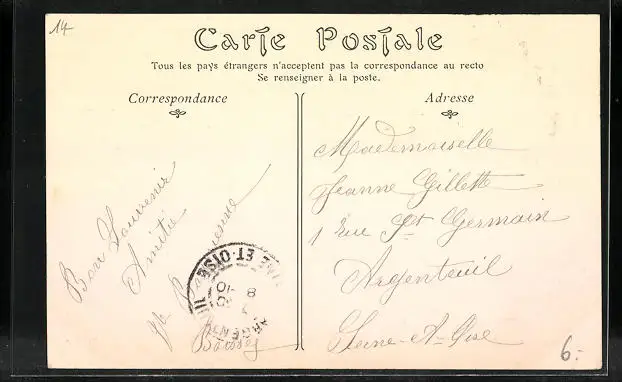 14
Carte Postale
Tous les pays étrangers n'acceptent pas la correspondance au recto
Se renseigner à la poste.
Correspondance
Adresse
Bon Souvenir
Amitié
Mademoiselle
Jeanne Gillette
1 rue St Germain
Argenteuil
Seine-&-Oise
INE-ET-OISE
8
10
ARGENT
6.-